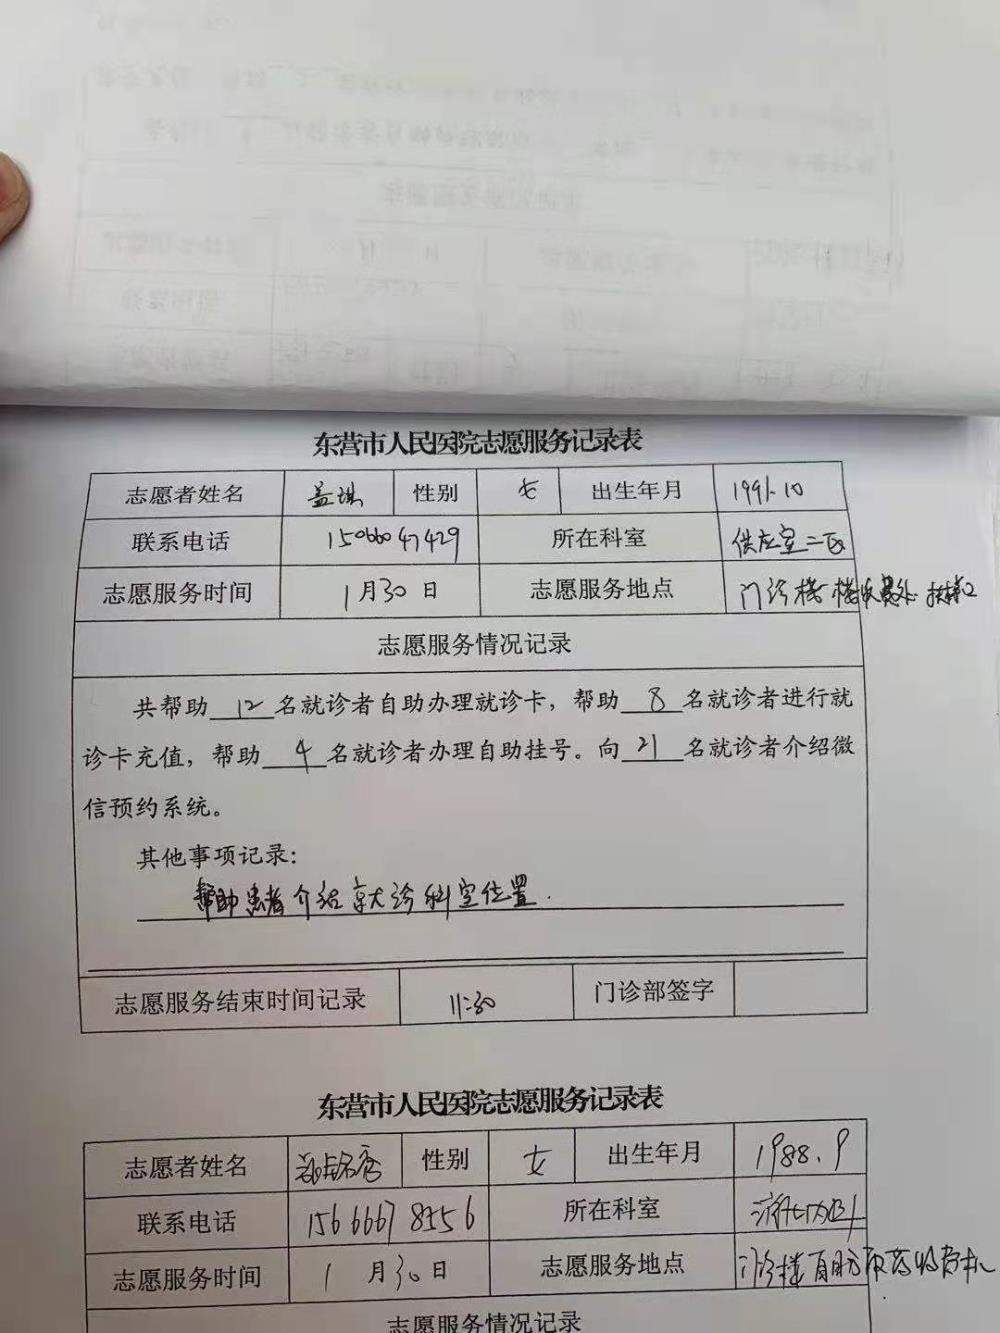 东营市人民医院志愿服务记录表
志愿者姓名 孟琪 性别 女 出生年月 1991.10
联系电话 15066047429 所在科室 供应室二区
志愿服务时间 1月30日 志愿服务地点 门诊楼
志愿服务情况记录
共帮助12名就诊者自助办理就诊卡，帮助8名就诊者进行就
诊卡充值，帮助4名就诊者办理自助挂号。向21名就诊者介绍微
信预约系统。
其他事项记录：
帮助患者介绍就诊科室位置.
志愿服务结束时间记录 11:30 门诊部签字
东营市人民医院志愿服务记录表
志愿者姓名 性别 女 出生年月 1988.9
联系电话 15666678556 所在科室
志愿服务时间 1月30日 志愿服务地点 门诊楼
志愿服务情况记录